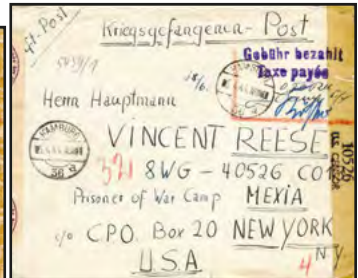 Kriegsgefangenen-Post
Gebühr bezahlt
Taxe payée
Herrn Hauptmann
HAMBURG
VINCENT REESE
321 8WG-40526 CO1
Prisoner of War Camp MEXIA
c/o CPO. Box 20 NEW YORK
USA
4 N.Y.
10526